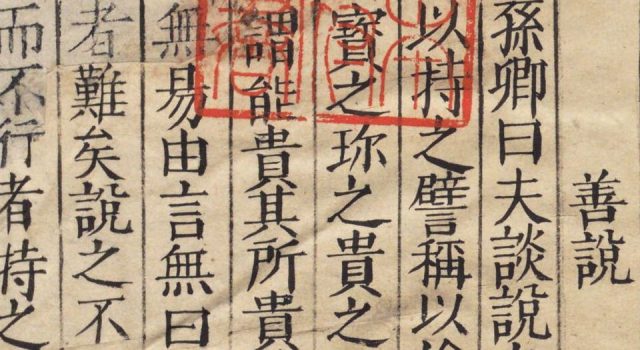 善說
孫卿曰夫談說
以持之譬稱以
寶之珎之貴之
謂能貴其所貴
無易由言無曰
者難矣說之不
而不行者持之